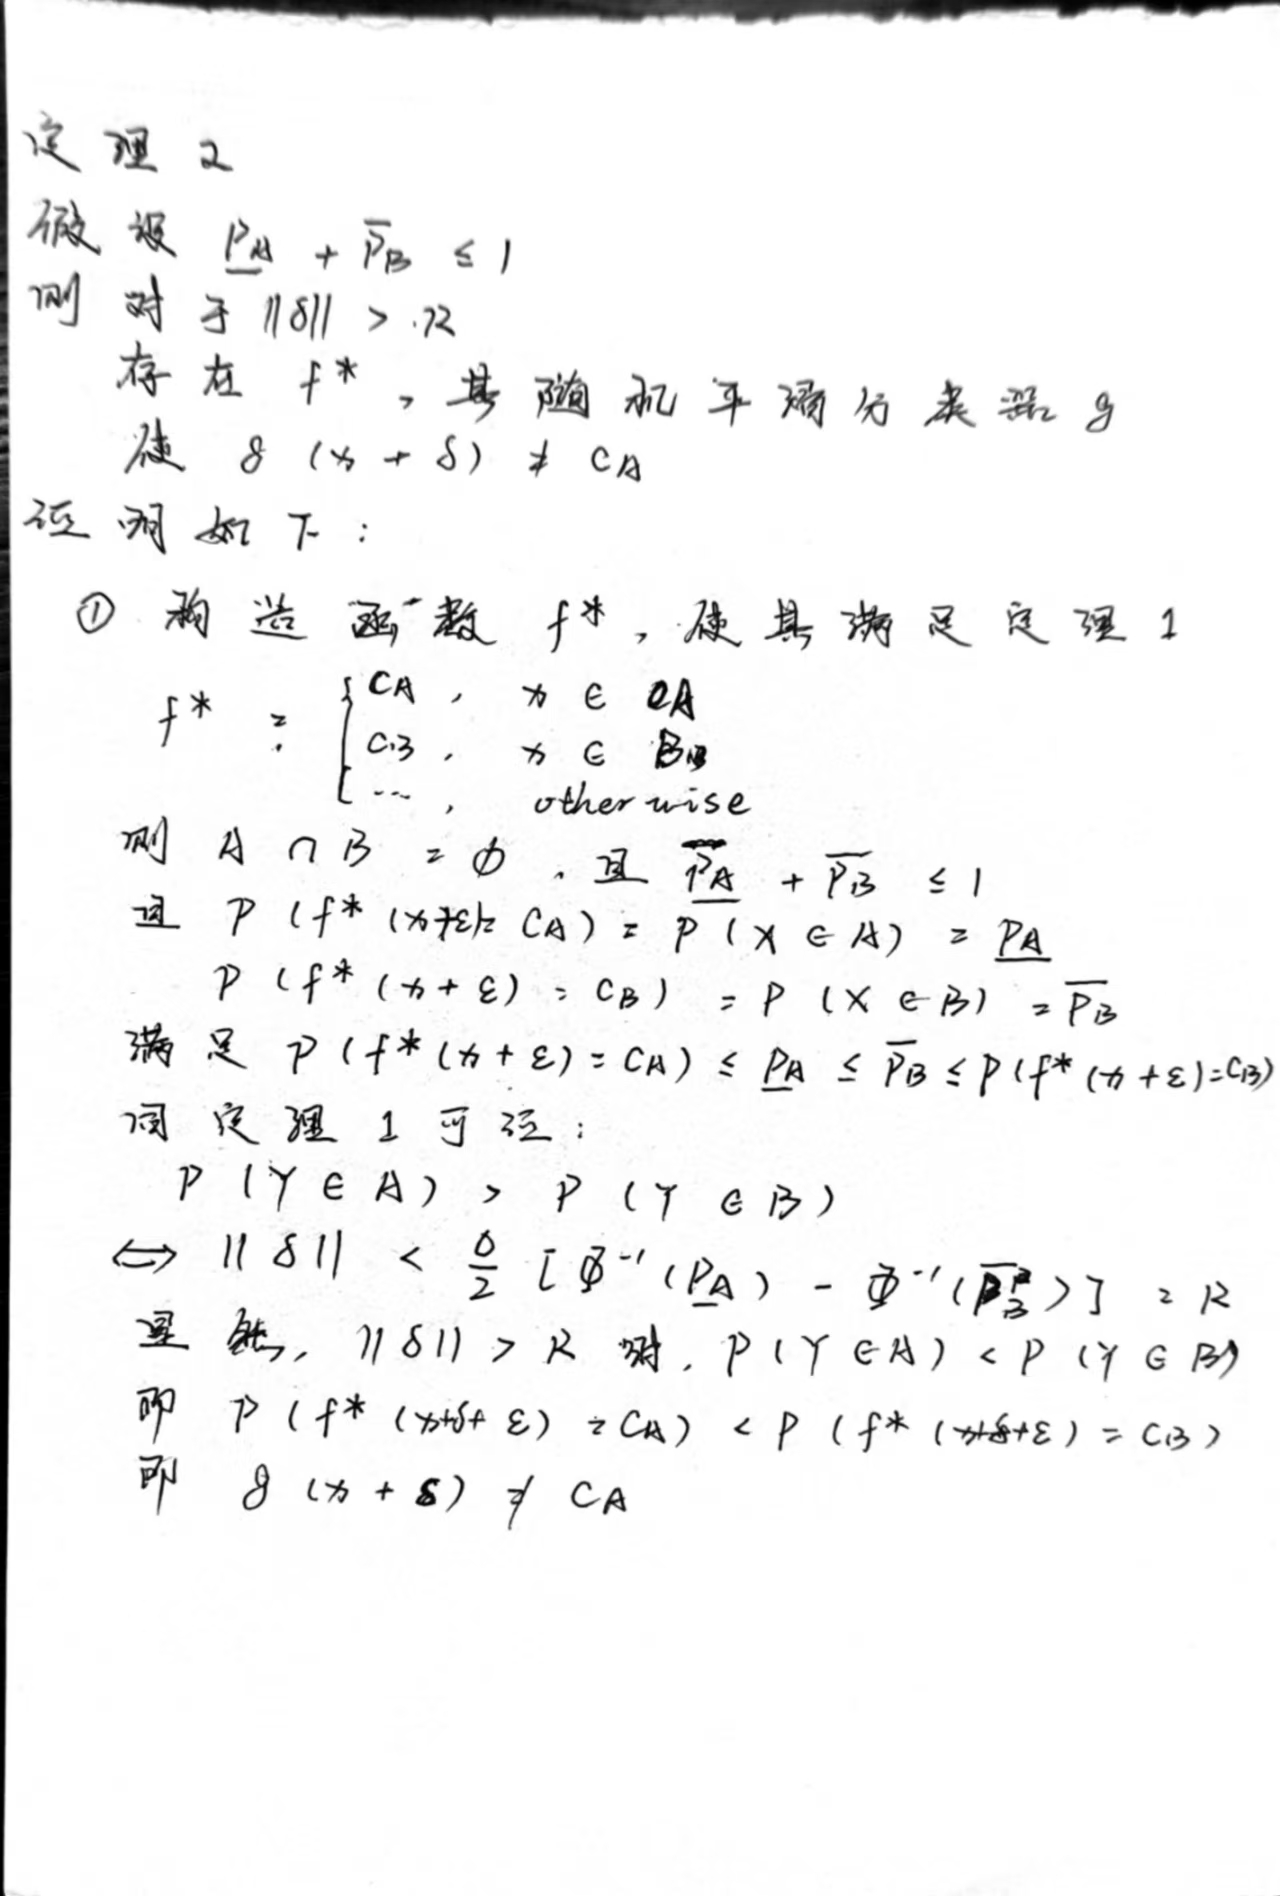 定理2
假设 P̲A + P̅B ≤ 1
则对于 ||δ|| > R
存在 f*, 其随机平滑分类器 g
使 g(x + δ) ≠ CA
证明如下:
① 构造函数 f*, 使其满足定理1
f* = { CA, x ∈ A
CB, x ∈ B
..., otherwise
则 A ∩ B = ∅, 且 P̲A + P̅B ≤ 1
且 P(f*(x+ε) = CA) = P(X ∈ A) = P̲A
P(f*(x+ε) = CB) = P(X ∈ B) = P̅B
满足 P(f*(x+ε) = CA) ≤ P̲A ≤ P̅B ≤ P(f*(x+ε) = CB)
同定理1可证:
P(Y ∈ A) > P(Y ∈ B)
⟺ ||δ|| < σ/2 [Φ⁻¹(P̲A) - Φ⁻¹(P̅B)] = R
显然, ||δ|| > R 时, P(Y ∈ A) < P(Y ∈ B)
即 P(f*(x+δ+ε) = CA) < P(f*(x+δ+ε) = CB)
即 g(x + δ) ≠ CA